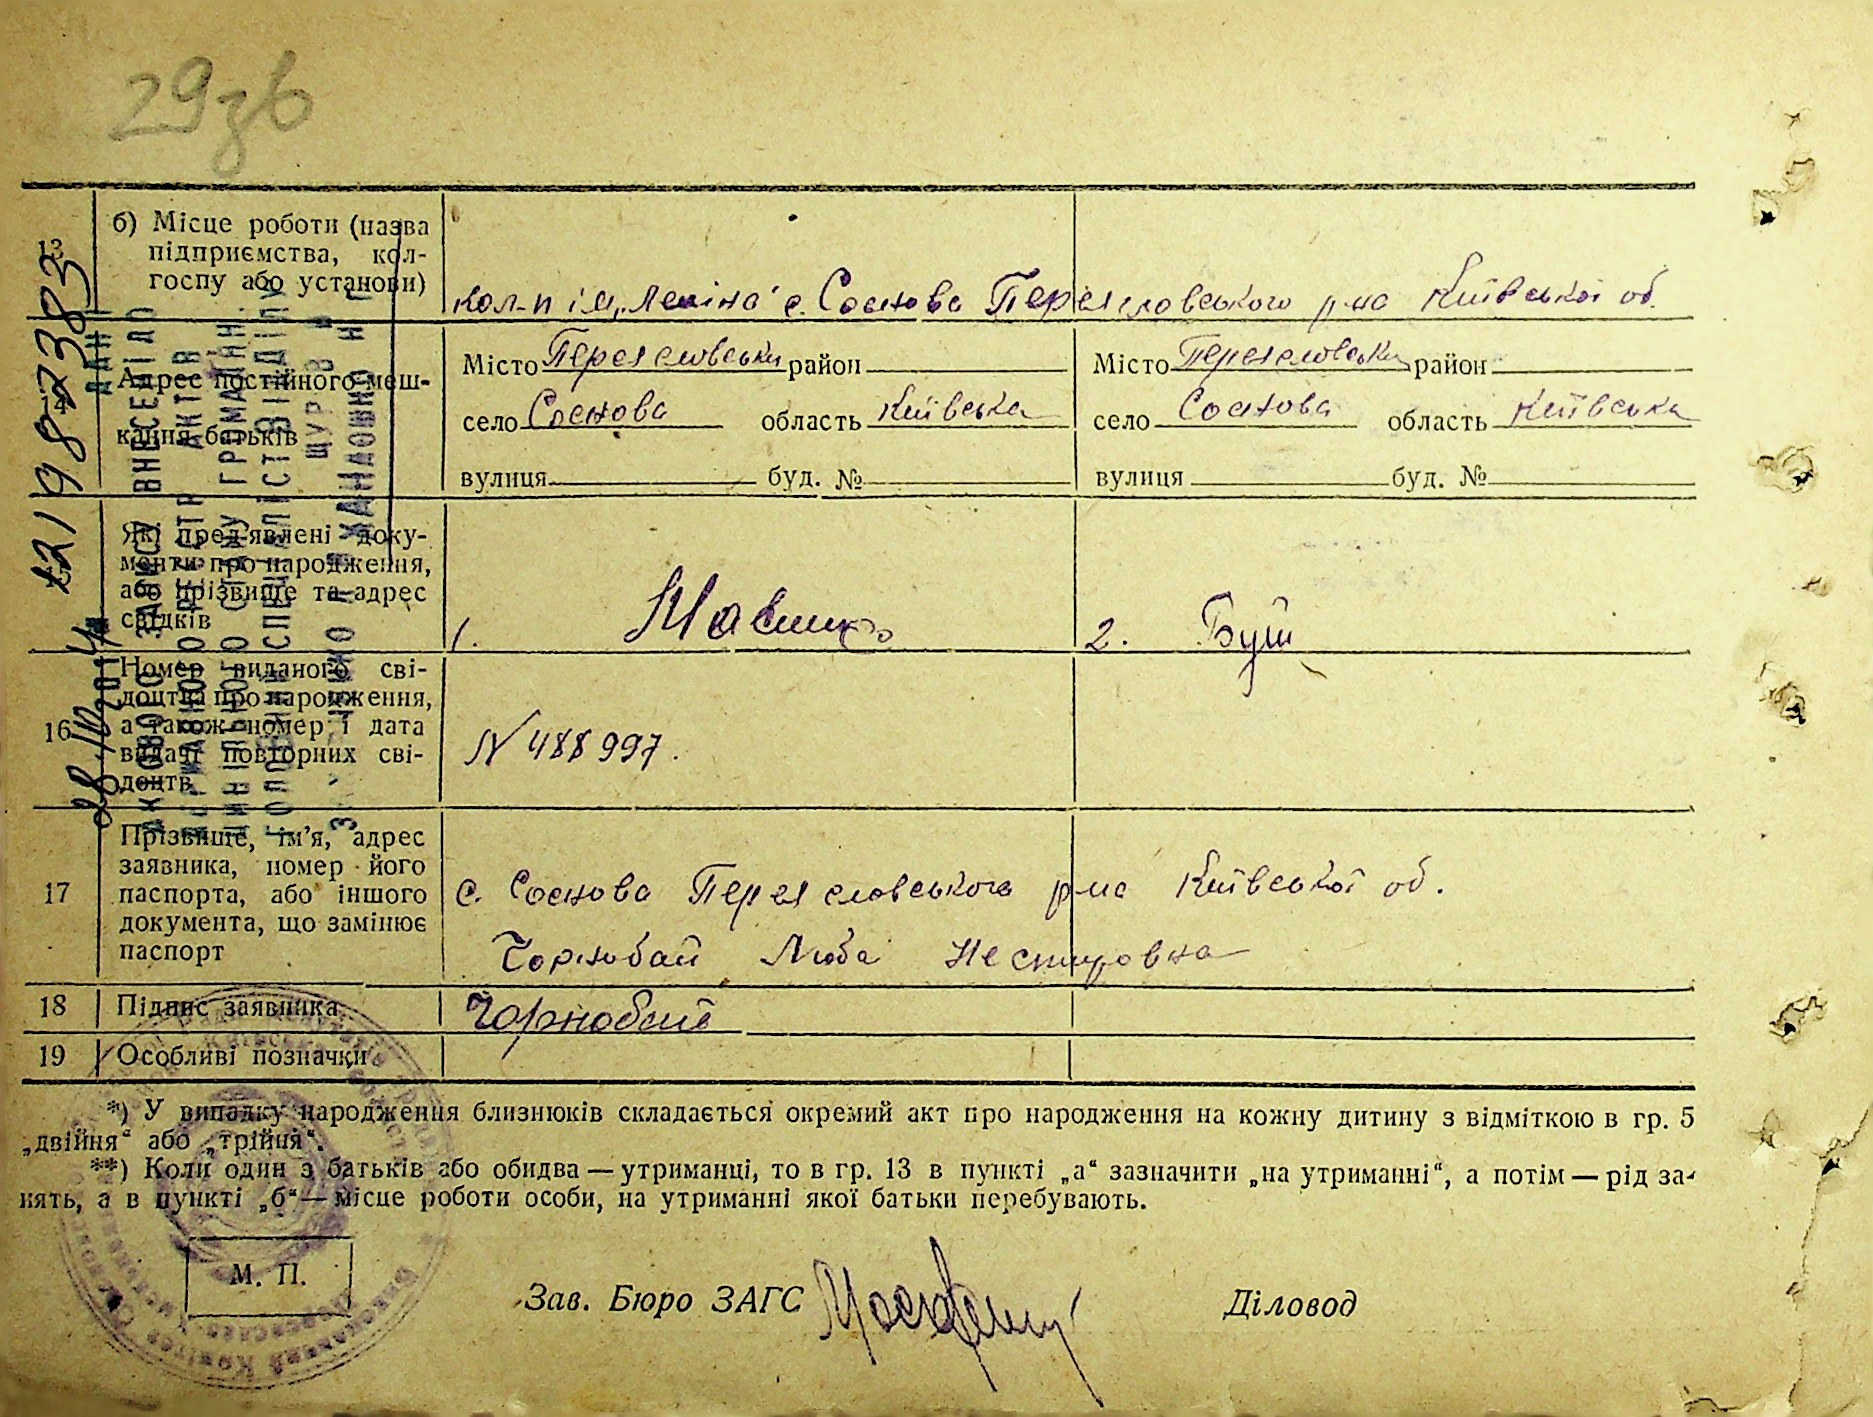 29зв
13 б) Місце роботи (назва
підприємства, кол-
госпу або установи)
кол-п ім. „Леніна" с. Соснова Переяславського р-на Київської об.
14 Адрес постійного меш-
кання батьків
Місто Переяславськи район Місто Переяславськи район
село Соснова область Київська село Соснова область Київська
вулиця буд. № вулиця буд. №
Які пред'явлені доку-
менти про народження,
або прізвище та адрес
свідків
1. 2. Буш
16 Номер виданого сві-
доцтва про народження,
а також номер і дата
видачі повторних сві-
доцтв
N 488997.
17 Прізвище, ім'я, адрес
заявника, номер його
паспорта, або іншого
документа, що замінює
паспорт
с. Соснова Переяславського р-на Київської об.
Чорнобай Люба Нестировна
18 Підпис заявника Чорнобай
19 Особливі позначки
*) У випадку народження близнюків складається окремий акт про народження на кожну дитину з відміткою в гр. 5
„двійня" або „трійня".
**) Коли один з батьків або обидва — утриманці, то в гр. 13 в пункті „а" зазначити „на утриманні", а потім — рід за-
нять, а в пункті „б" — місце роботи особи, на утриманні якої батьки перебувають.
М. П.
Зав. Бюро ЗАГС Діловод